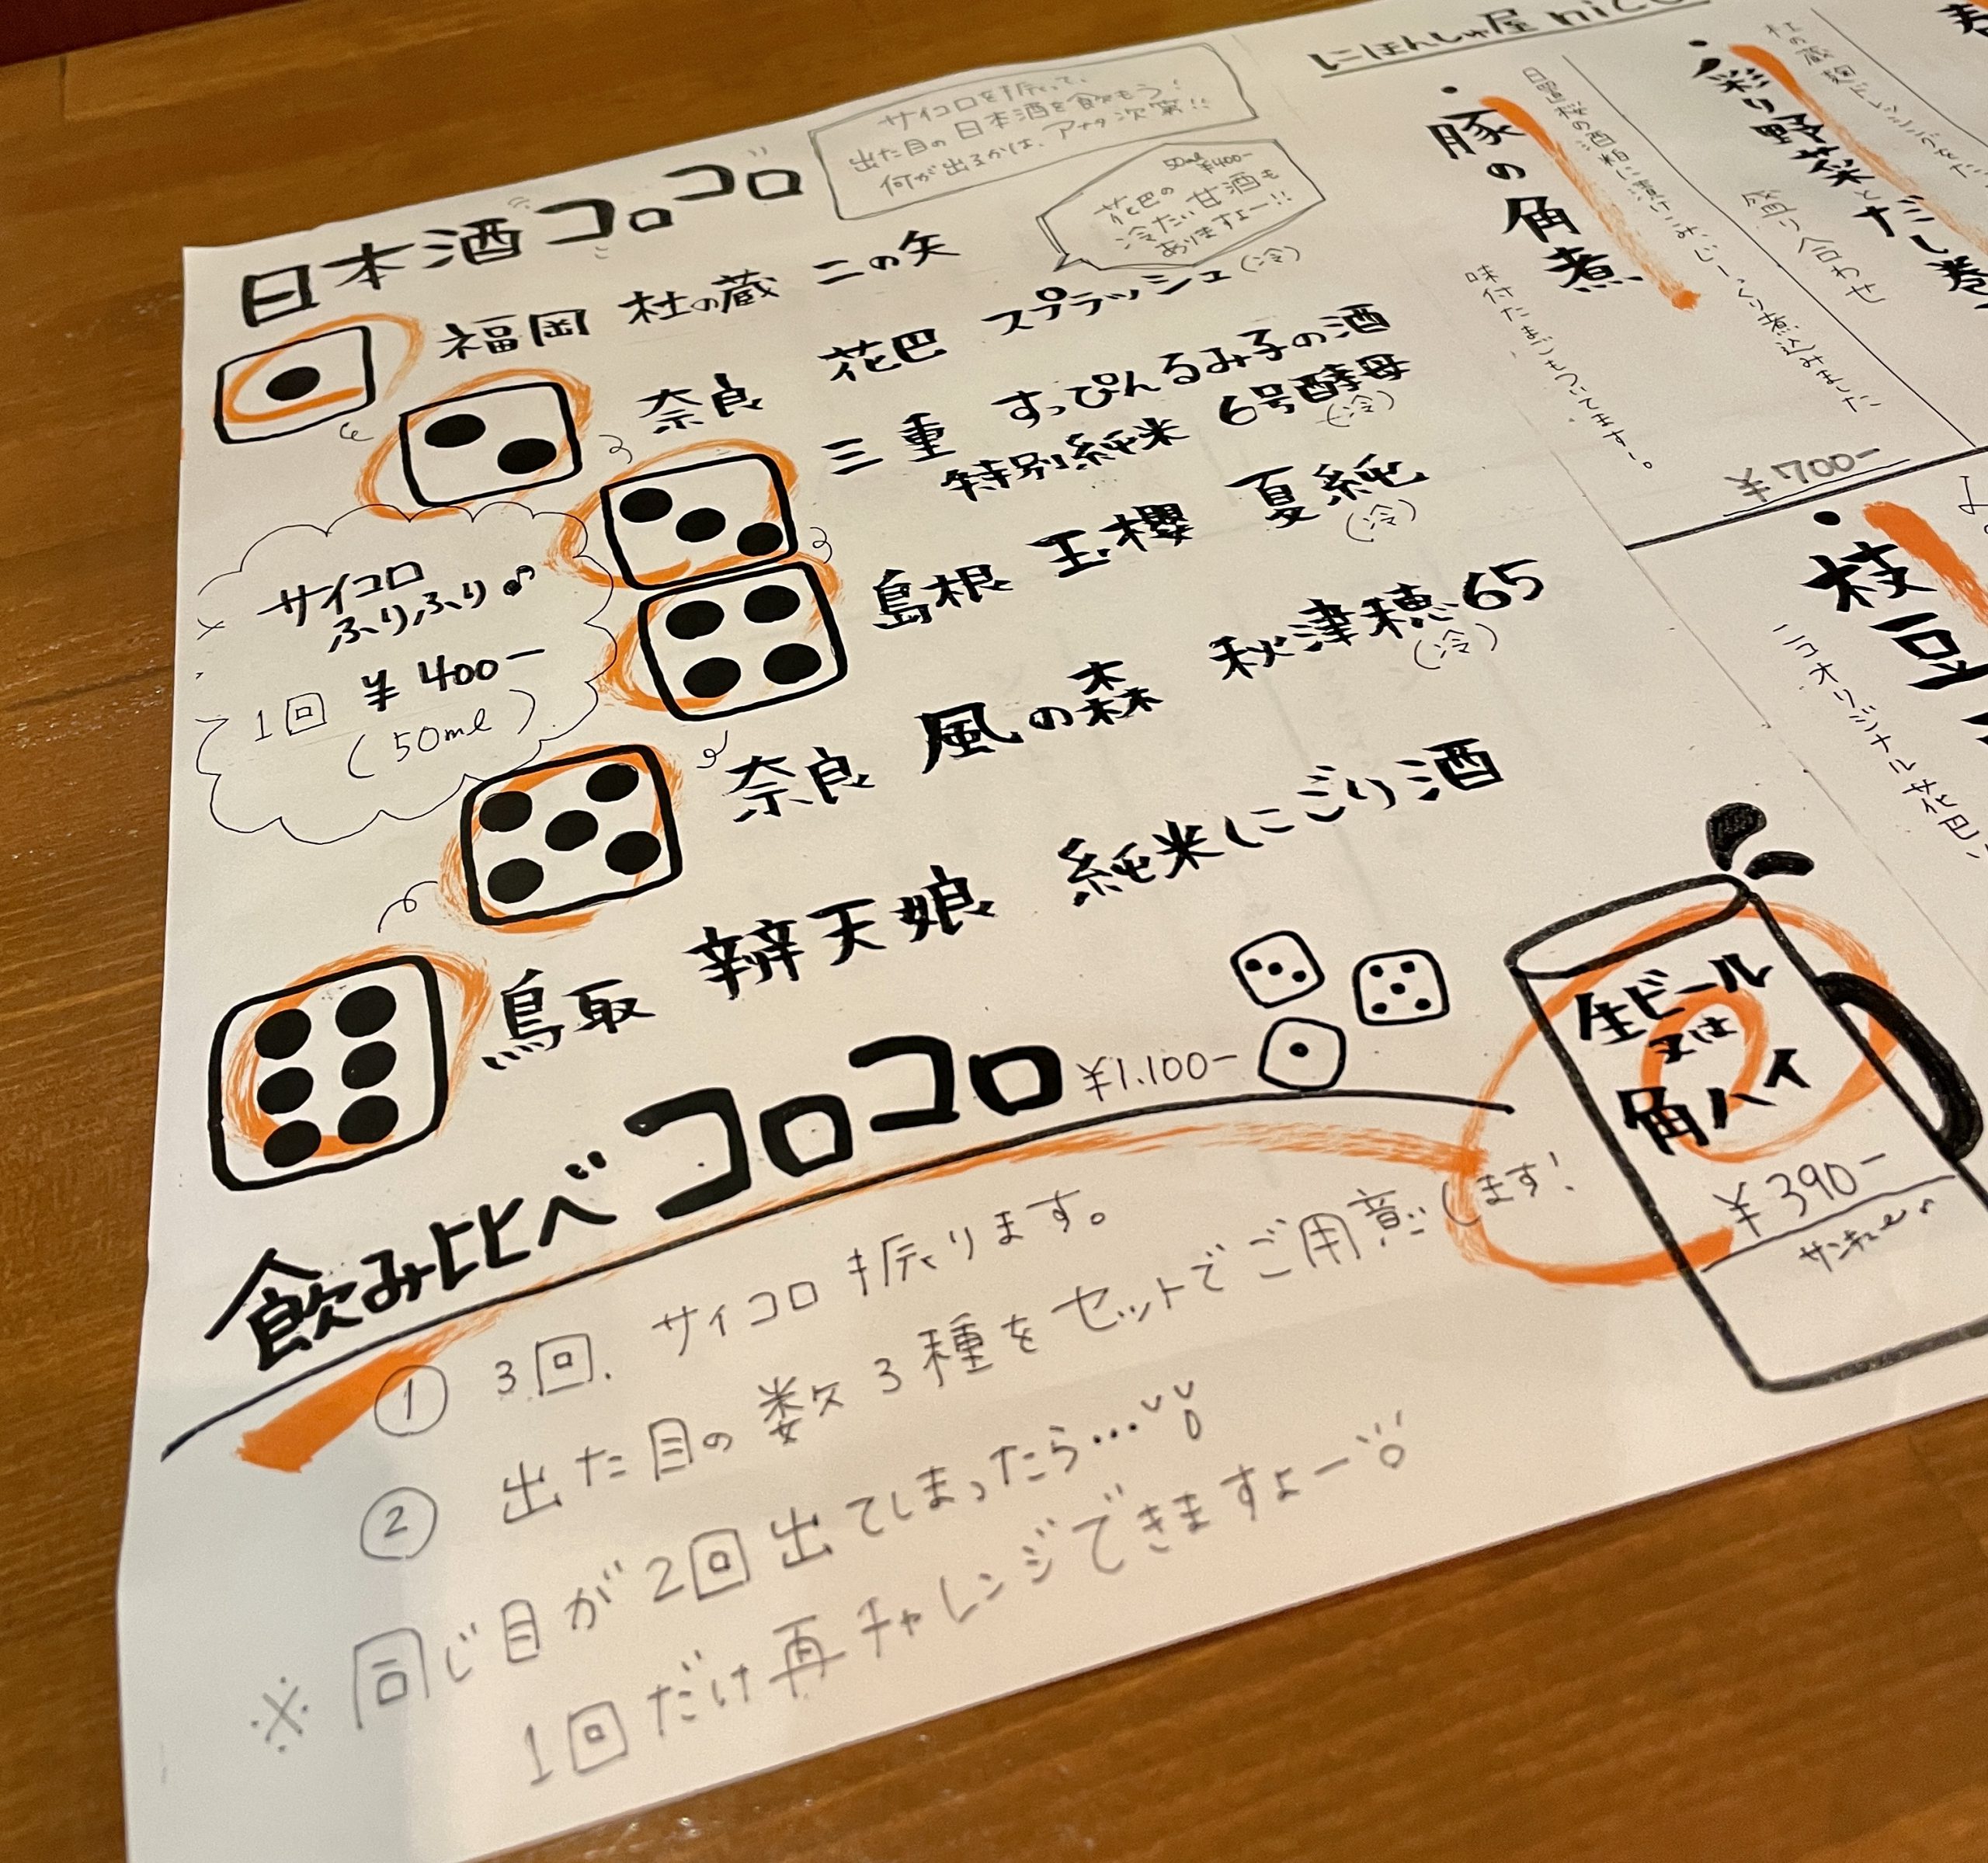 にほんしゅ屋 nico
日本酒コロコロ
サイコロを振って、
出た目の日本酒を飲もう!
何が出るかは、アナタ次第!!
50ml ¥400-
花巴の
冷たい甘酒も
ありますよー!!
福岡 杜の蔵 二の矢
奈良 花巴 スプラッシュ(冷)
三重 すっぴんるみ子の酒
特別純米 6号酵母
(冷)
島根 玉櫻 夏純
(冷)
奈良 風の森 秋津穂65
(冷)
鳥取 辨天娘 純米にごり酒
サイコロ
ふりふり♪
1回 ¥400-
(50ml)
飲み比べコロコロ ¥1.100-
① 3回、サイコロ振ります。
② 出た目の数3種をセットでご用意します!
※同じ目が2回出てしまったら…
1回だけ再チャレンジできますよー
生ビール
又は
角ハイ
¥390-
サンキュー♪
・豚の角煮
味付たまごもついてます〜。
¥700-
・彩り野菜とだし巻
盛り合わせ
・枝豆
ニコオリジナル花巴